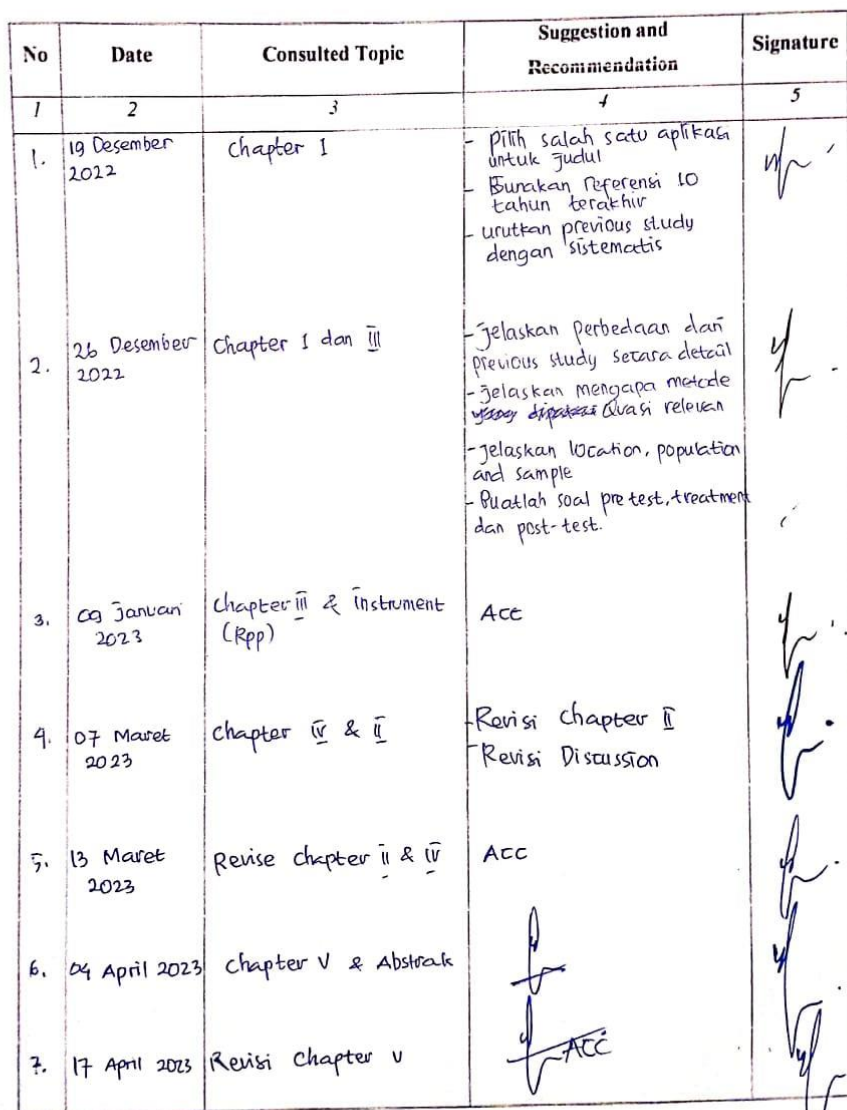 No Date Consulted Topic Suggestion and Recommendation Signature
1 2 3 4 5
1. 19 Desember 2022
Chapter I
- Pilih salah satu aplikasi
untuk judul
- Gunakan referensi 10
tahun terakhir
- urutkan previous study
dengan sistematis
2. 26 Desember 2022
Chapter I dan III
- jelaskan perbedaan dari
previous study secara detail
- jelaskan mengapa metode
yang dipakai Quasi relevan
- jelaskan location, population
and sample
- Buatlah soal pre test, treatment
dan post-test.
3. 09 Januari 2023
Chapter III & instrument
(Rpp)
ACC
4. 07 Maret 2023
Chapter IV & II
- Revisi Chapter II
- Revisi Discussion
5. 13 Maret 2023
Revise chapter II & IV
ACC
6. 04 April 2023
Chapter V & Abstrak
7. 17 April 2023
Revisi Chapter V
ACC